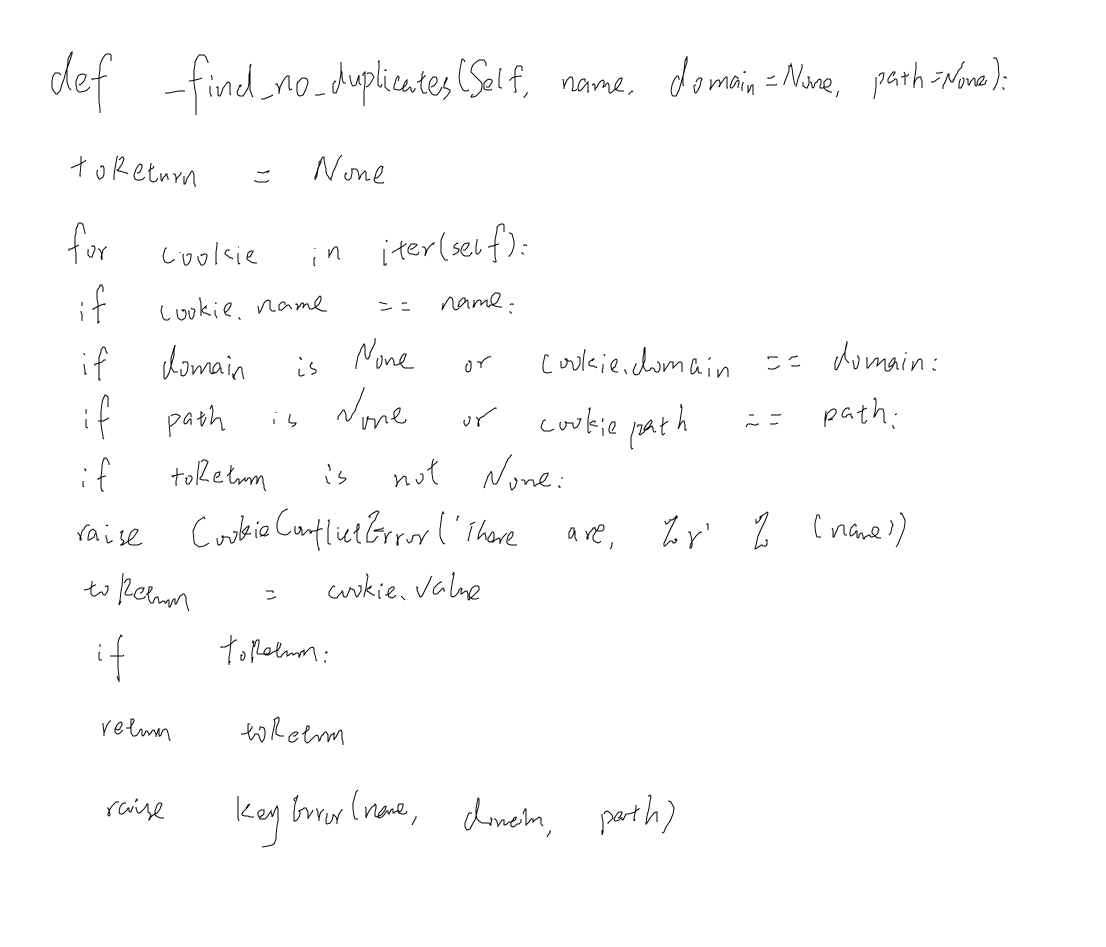 def _find_no_duplicates(Self, name, domain=None, path=None):
toReturn = None
for cookie in iter(self):
if cookie.name == name:
if domain is None or cookie.domain == domain:
if path is None or cookie path == path:
if toReturn is not None:
raise CookieConflictError('There are, %r' % (name))
toReturn = cookie.value
if toReturn:
return toReturn
raise keyError(name, domain, path)